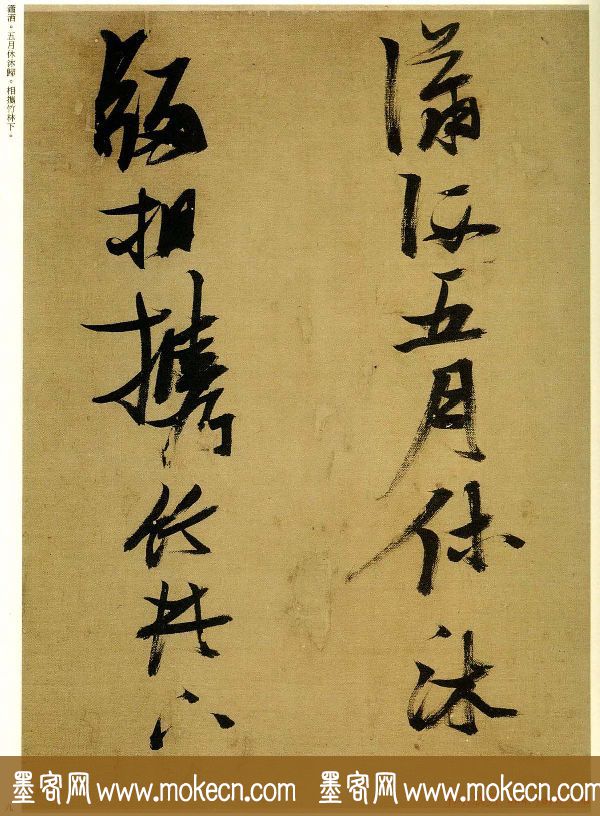 瀟洒五月休沐
歸相攜竹林下
瀟洒。五月休沐歸。相攜竹林下。
墨客网 www.mokecn.com 墨客网 www.mokecn.com